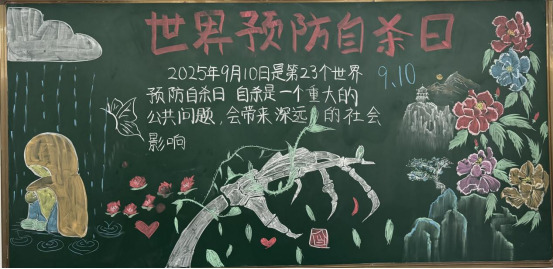 世界预防自杀日
2025年9月10日是第23个世界
9.10
预防自杀日 自杀是一个重大的
公共问题,会带来深远 的社会
影响